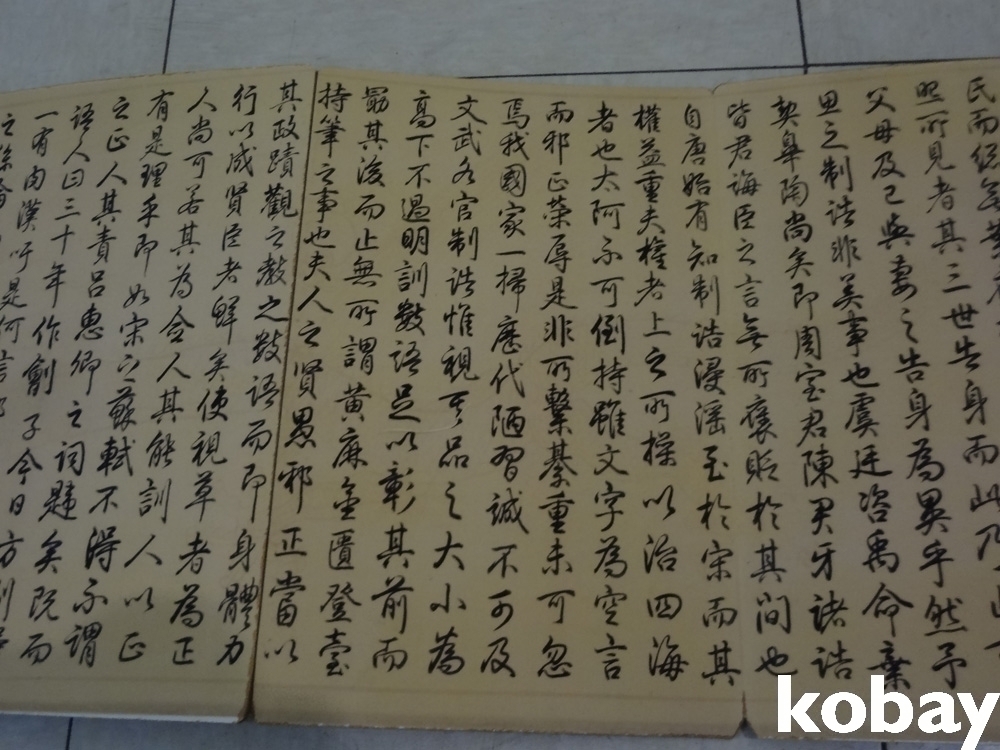 民而
照所見者其三世告身而此乃
父母及己與妻之告身為異乎然予
思之制誥非美事也虞廷咨禹命棄
契皐陶尚矣即周室君陳君牙諸誥
皆君誨臣之言無所褒貶於其間也
自唐始有知制誥浸淫至於宋而其
權益重夫權者上之所操以治四海
者也太阿不可倒持雖文字為空言
而邪正榮辱是非所繫綦重未可忽
焉我國家一掃歷代陋習誠不可及
文武各官制誥惟視其品之大小為
高下不過明訓數語足以彰其前而
勗其後而止無所謂黃麻金匱登臺
持筆之事也夫人之賢愚邪正當以
其政蹟觀之教之數語而即身體力
行以成賢臣者鮮矣使視草者為正
人尚可若其為僉人其能訓人以正
有是理乎即如宋之蘇軾不得不謂
之正人其責呂惠卿之詞韙矣既而
語人曰三十年作劊子今日方剮
一有肉漢吁是何言